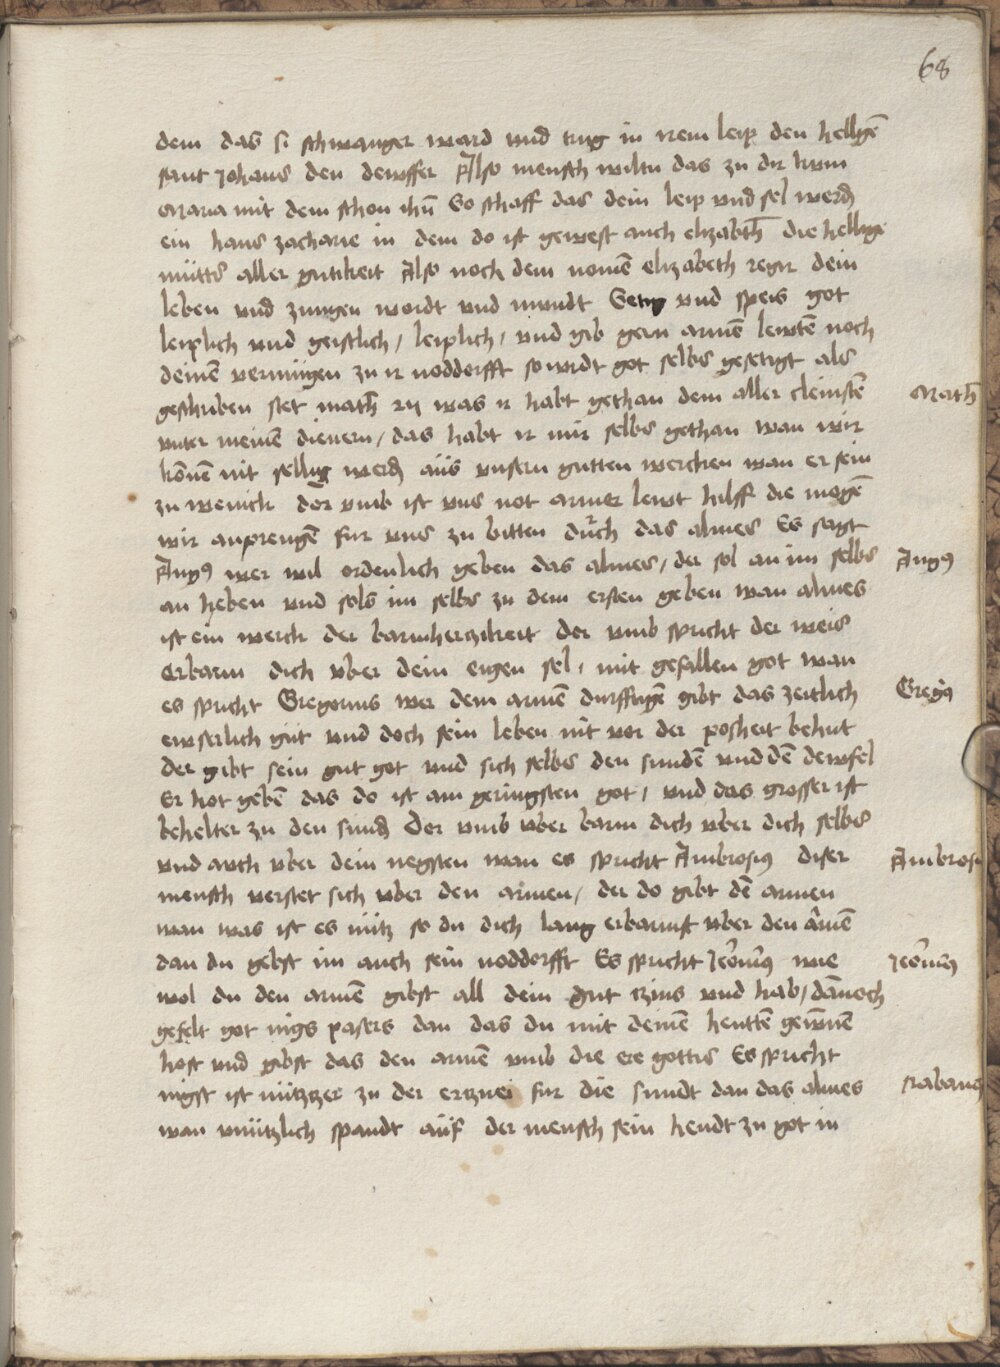 68
dem das si schwanger ward vnd trug in irem leip den helligē
sant Johans den dewffer Also mensch wiltu das zu dir kum
Maria mit dem schon ihū So schaff das dein leip vnd sel werd
ein haus zacharie in dem do ist gewest auch elizabth̄ die hellige
mutter aller gutikeit Also noch dem nomē elizabeth regir dein
leben vnd zungen wordt vnd mundt Setig vnd speis got
leiplich vnd geistlich / leiplich / vnd gib gern armē lewtē noch
deinē vermugen zu ir noddorfft so wirdt got selbs gesetigt als
geschriben stet math̄ xxv was ir habt gethan dem aller cleinstē
Math̄
vnter meinē dienern / das habt ir mir selbs gethan wan wir
kōnē nit sellig werdē aus vnsern gutten wercken wan er sein
zu wenick dor vmb ist vns not armer lewt hilff die mogē
wir anprengē fur vns zu bitten durch das almes Es sagt
Augꝰ wer wil ordenlich geben das almes / der sol an im selbs
Augꝰ
an heben vnd sols im selbs zu dem ersten geben wan almes
ist ein werck der barmherzikeit dor vmb spricht der weis
erbarm dich vber dein eigen sel / mit gefallen got wan
es spricht Gregorius wer dem armē durfftigē gibt das zeitlich
Gregꝰ
ewserlich gut vnd doch sein leben nit vor der posheit behut
der gibt sein gut got vnd sich selbs den sundē vnd dē dewfel
Er hot gebē das do ist am geringsten got / vnd das grosser ist
behelter zu den sundē Dor vmb vber barm dich vber dich selbs
vnd auch vber dein negsten wan es spricht Ambrosiꝰ diser
Ambrosi
mensch verstet sich vber den armen / der do gibt dē armen
wan was ist es nutz so du dich lang erbarmst vber den armē
dan du gebst im auch sein noddorfft Es spricht Jeronimꝰ wie
Jeronimꝰ
wol du den armē gibst all dein gut tzins vnd hab / dānoch
gefelt got nigs pasers dan das du mit deinē henttē gewinē
host vnd gibst das den armē vmb die ere gottis Es spricht
nigst ist nutzzer zu der ertznei fur die sundt dan das almes
Rabanꝰ
wan vnutzlich spandt auf der mensch sein hendt zu got in